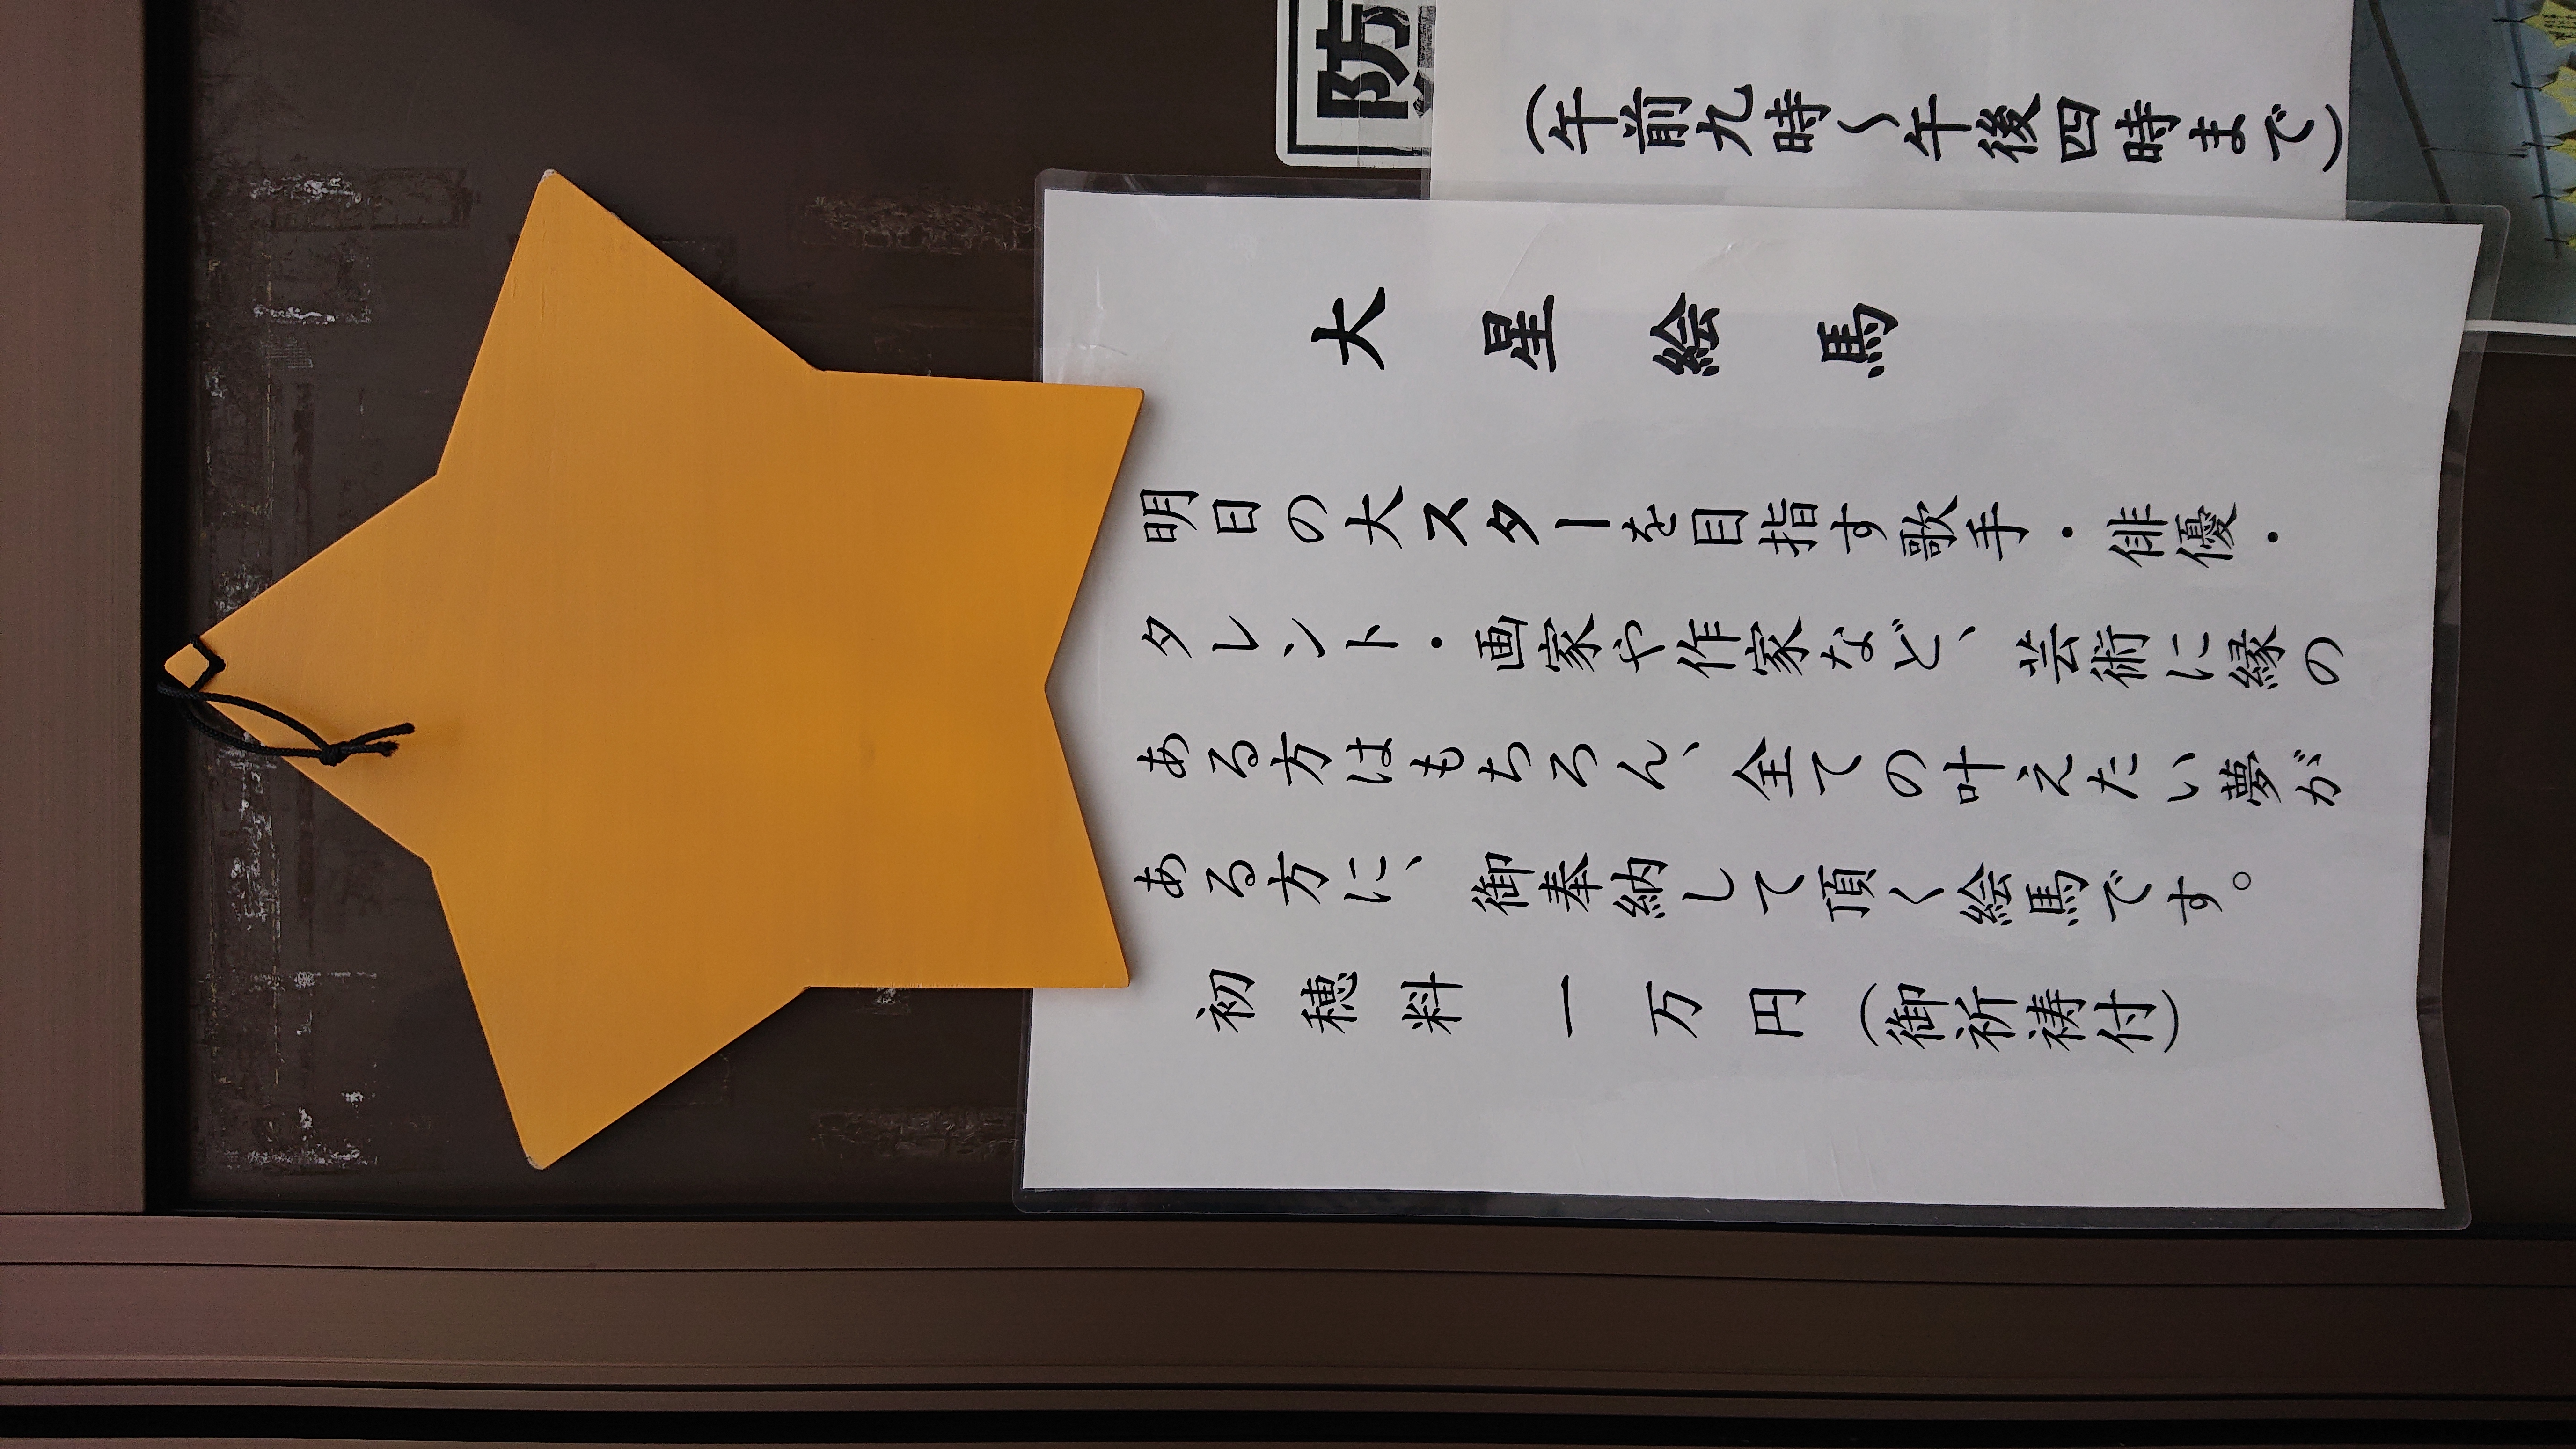 防
(午前九時～午後四時まで)
大星絵馬
明日の大スターを目指す歌手・俳優・
タレント・画家や作家など、芸術に縁の
ある方はもちろん、全ての叶えたい夢が
ある方に、御奉納して頂く絵馬です。
初穂料 一万円(御祈祷付)